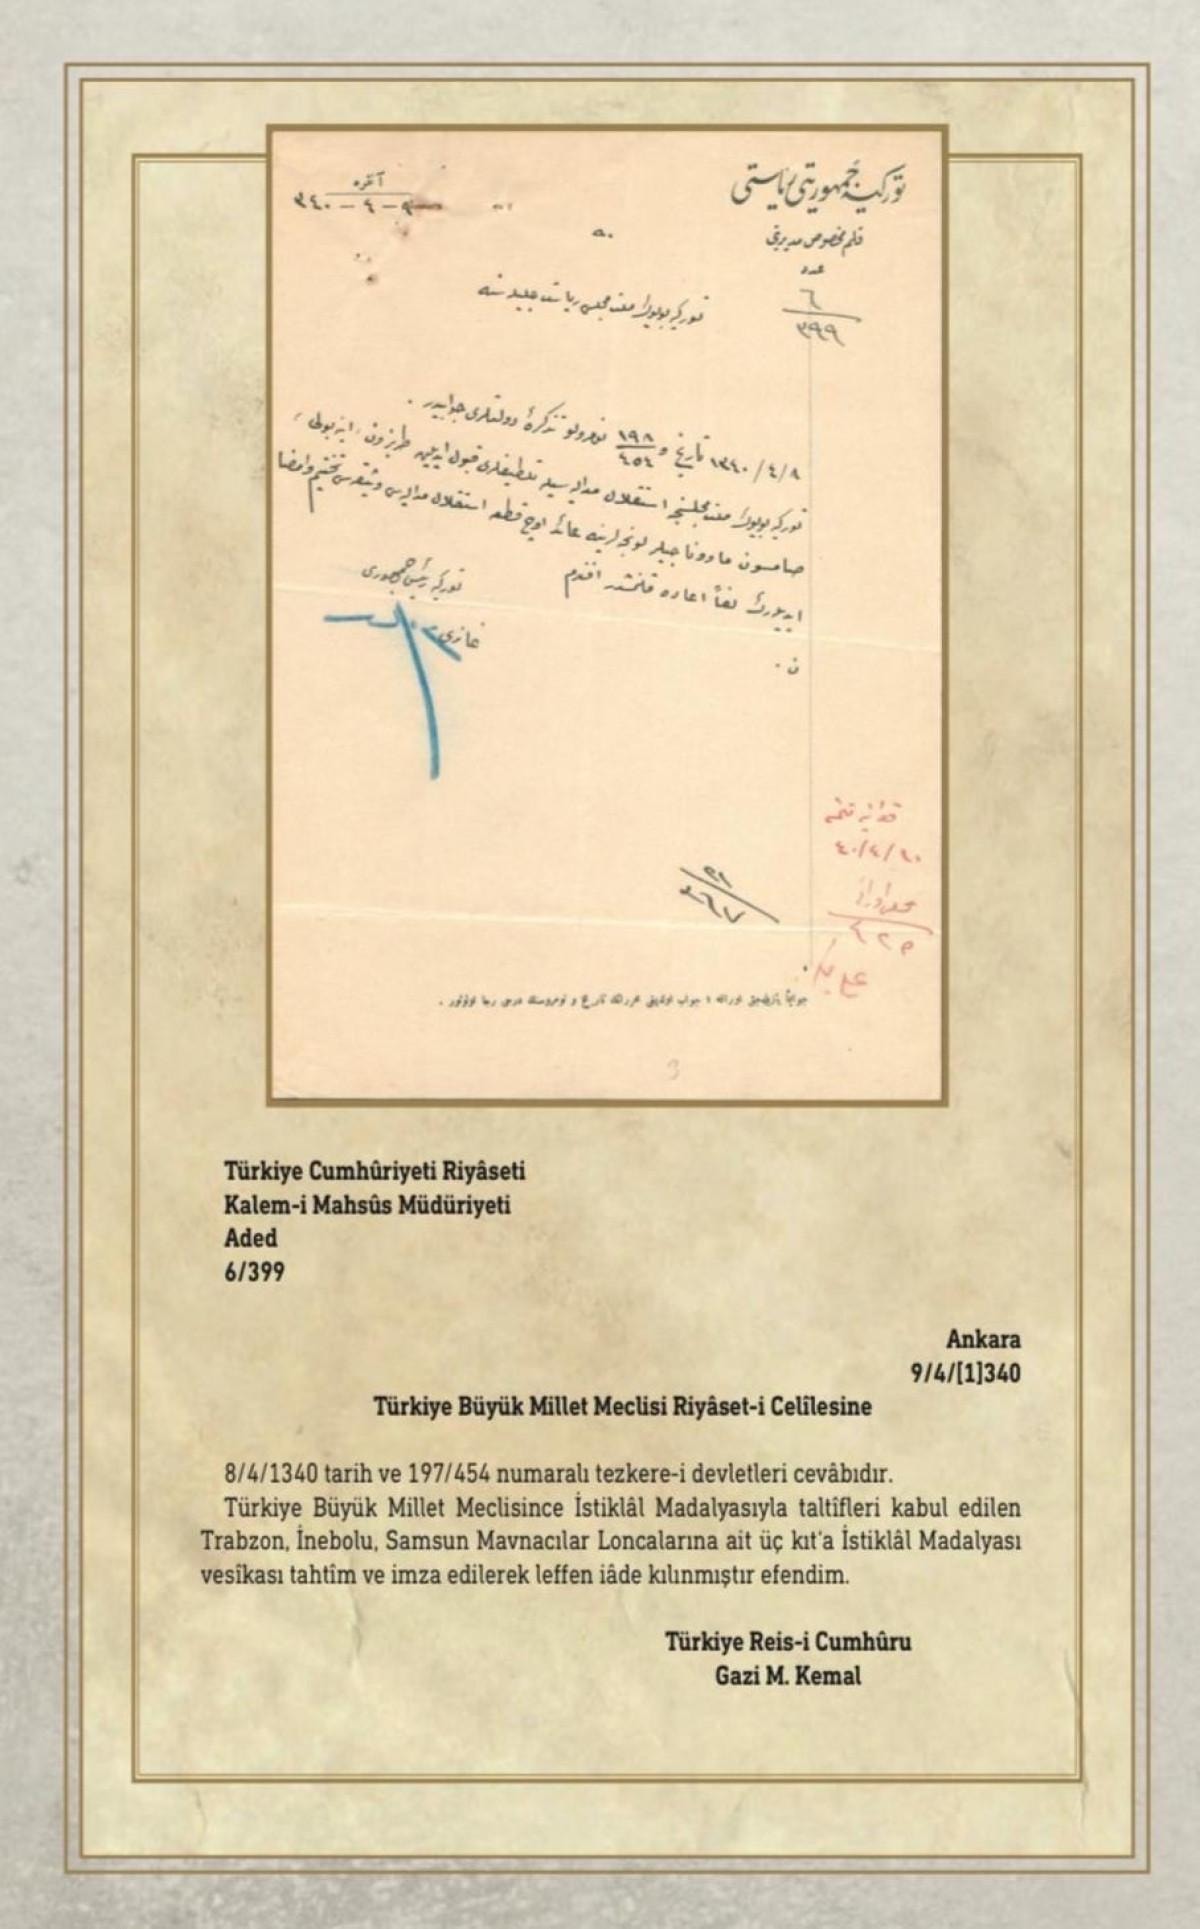 توركيه جمهوريتى رياستى
قلم مخصوص مديريتى
عدد
٦
٣٩٩
آنقره
٩ - ٤ - ٣٤٠
توركيه بويوك ملت مجلسى رياست جليله سنه
٨/٤/١٣٤٠ تاريخ و ١٩٨/٤٥٤ نومرولو تذكرۀ دولتلرى جوابيدر .
توركيه بويوك ملت مجلسنجه استقلال مداليه سيله تلطيفلرى قبول ايديلن طربزون ، اينه بولى ،
صامسون ماوناجيلر لونجه لرينه عائد اوچ قطعه استقلال مداليه سى وثيقه سى تختيم وامضا
ايديلرك لفاً اعاده قلنمشدر افندم
ن .
توركيه رئيس جمهورى
غازى
٤٠/٤/١٠
٤٢٥
3
Türkiye Cumhûriyeti Riyâseti
Kalem-i Mahsûs Müdüriyeti
Aded
6/399
Ankara
9/4/[1]340
Türkiye Büyük Millet Meclisi Riyâset-i Celîlesine
8/4/1340 tarih ve 197/454 numaralı tezkere-i devletleri cevâbıdır.
Türkiye Büyük Millet Meclisince İstiklâl Madalyasıyla taltîfleri kabul edilen
Trabzon, İnebolu, Samsun Mavnacılar Loncalarına ait üç kıt'a İstiklâl Madalyası
vesîkası tahtîm ve imza edilerek leffen iâde kılınmıştır efendim.
Türkiye Reis-i Cumhûru
Gazi M. Kemal